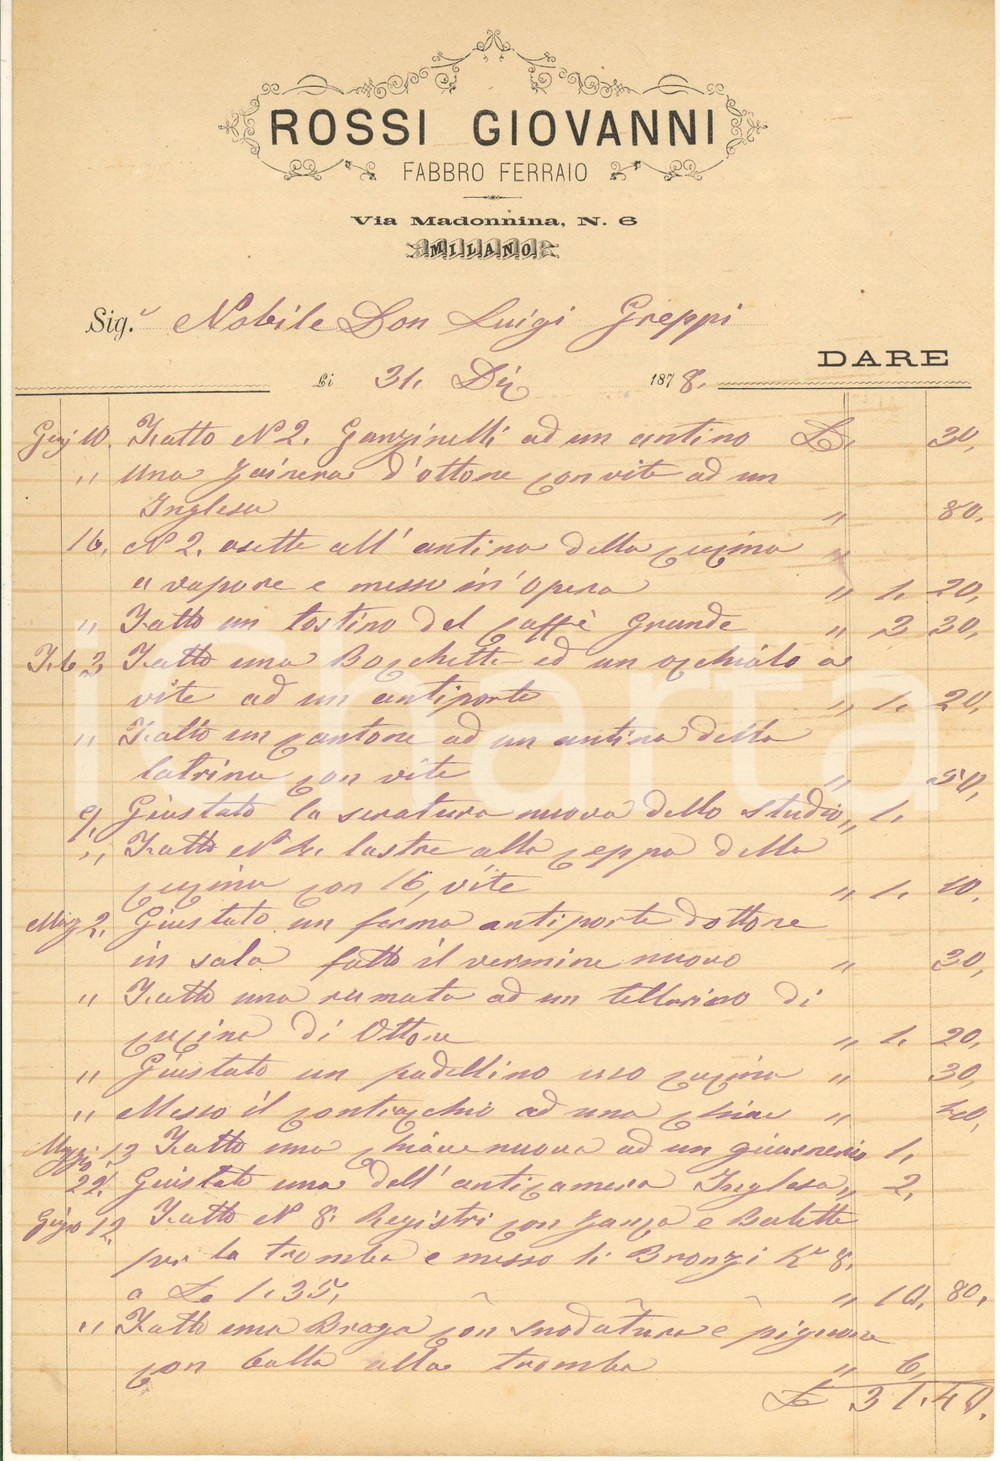 ROSSI GIOVANNI
FABBRO FERRAIO
Via Madonnina, N. 6
MILANO
Sig.r Nobile Don Luigi Greppi
DARE
Li 31. Dic 1878.
Gen 10. Fatto N 2. Ganzinelli ad un antino L. 30,
" Una d'ottone con vite ad un
Inglesa " 80.
16, N 2. asette all' antina della cucina "
a vapore e messe in' Opera " 1, 20,
" Fatto un tostino del caffè Grande " 2 30,
Feb 3 Fatto una Bocchette ed un occhiälo a
vite ad un antiporte " 1, 20,
" Fatto un cantone ad un antina della
latrina con vite " 50,
9, Giustato la seratura nuova dello studio " 1,
" Fatto N 4. lastre alla ceppa della
cucina con 16, vite " 1, 10,
Marz 2. Giustato un ferma antiporte d'ottone
in sala fatto il vermine nuovo " 30,
" Fatto una ad un tellarino di
cucina di Ottone " 1, 20,
" Giustato un padellino uso cucina " 30,
" Messo il contracchio ad una chiave " 40,
Maggio 13 Fatto una chiave nuova ad un guarnerio 1,
22. Giustato una dell' anticamera Inglesa " 2,
Giugno 12 Fatto N 8. Registri con ganza e Balette
per la tromba e messo li Bronzi N 8.
a L 1.35, " 10, 80,
" Fatto una Braga con snodatura e pignone
con balla alla tromba " 6,
L 31.40,
iCharta